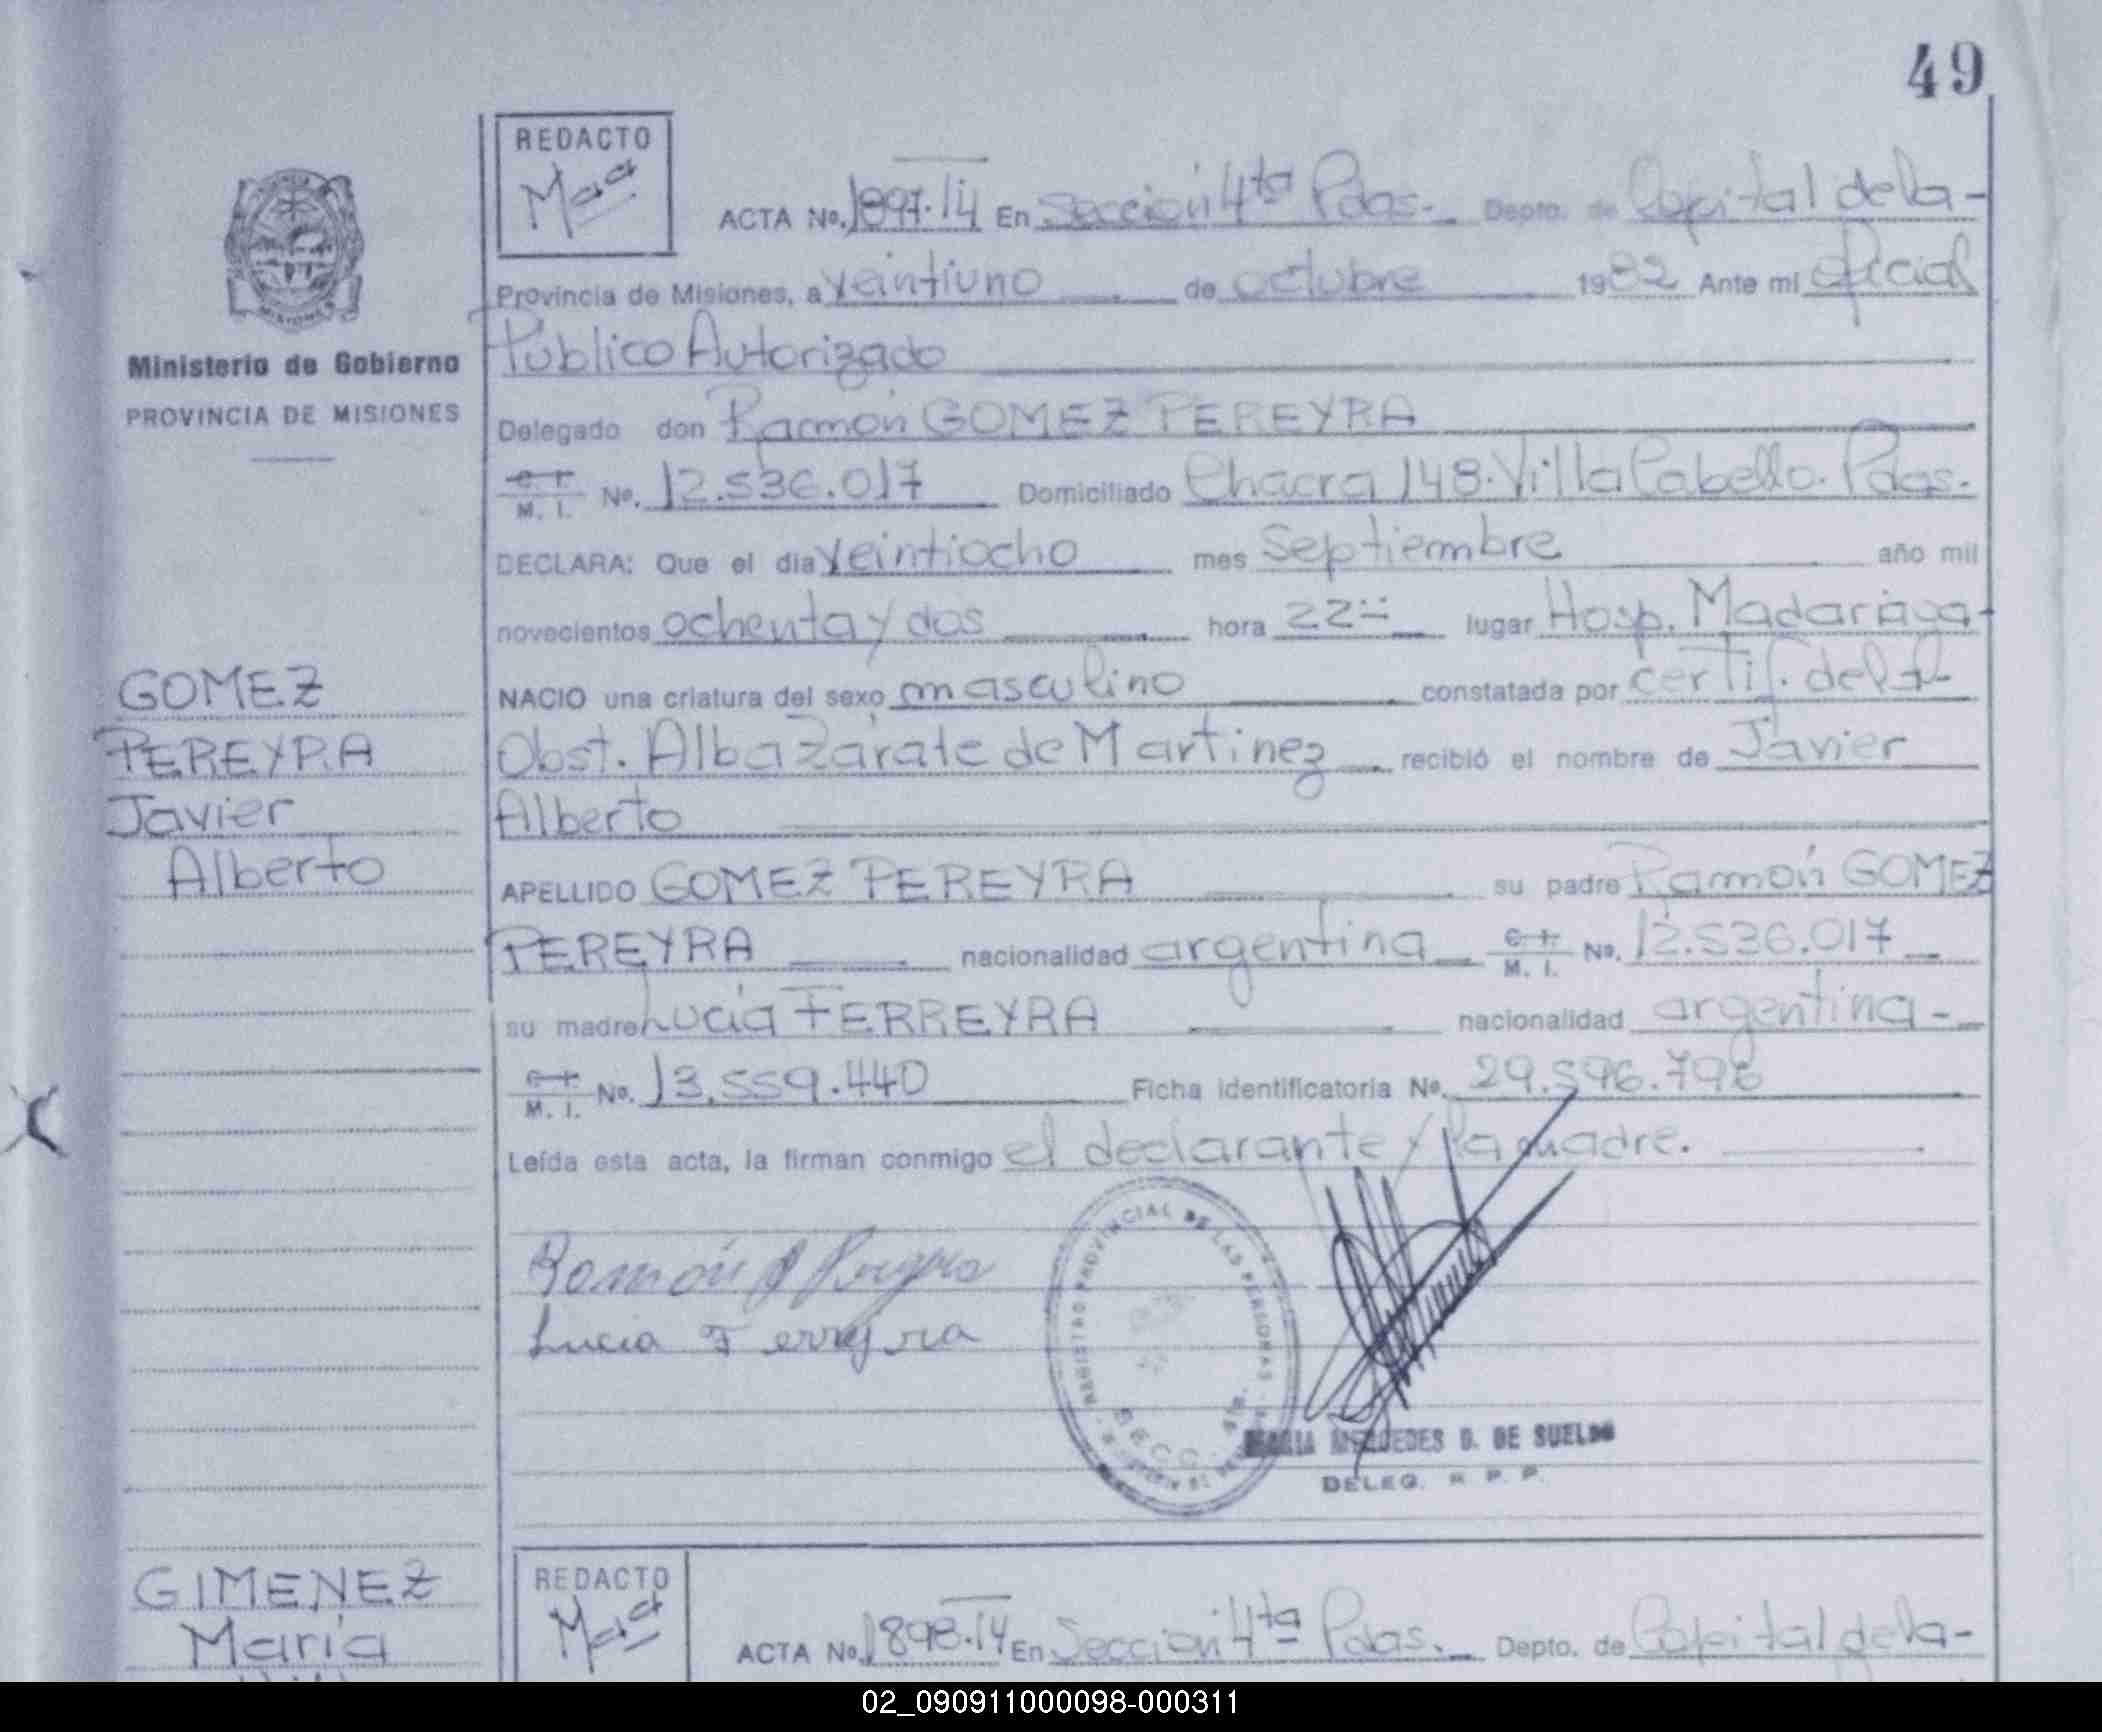 49
REDACTO
ACTA No. 1897.14 En Sección 4ta Pdas. Depto. de Capital de la-
Provincia de Misiones, a veintiuno de octubre 1982 Ante mi oficial
Público Autorizado
Ministerio de Gobierno
PROVINCIA DE MISIONES
Delegado don Ramón GOMEZ PEREYRA
M. I. No. 12.536.017 Domiciliado Chacra 148. Villa Cabello. Pdas.
DECLARA: Que el dia veintiocho mes septiembre año mil
novecientos ochenta y dos hora 22 lugar Hosp. Madariaga-
NACIO una criatura del sexo masculino constatada por certif. de la
Obst. Alba Zárate de Martinez recibió el nombre de Javier
Alberto
GOMEZ
PEREYRA
Javier
Alberto
APELLIDO GOMEZ PEREYRA su padre Ramón GOMEZ
PEREYRA nacionalidad argentina M. I. No. 12.536.017
su madre Lucia FERREYRA nacionalidad argentina-
M. I. No. 13.559.440 Ficha identificatoria No. 29.596.798
Leída esta acta, la firman conmigo el declarante y la madre.
Ramón Pereyra
Lucia Ferreyra
REGISTRO PROVINCIAL DE LAS PERSONAS
SECC. 4ta.
MARIA MERCEDES D. DE SUELDO
DELEG. R. P. P.
GIMENEZ
María
REDACTO
ACTA No. 1898.14 En Sección 4ta Pdas. Depto. de Capital de la-
02_090911000098-000311